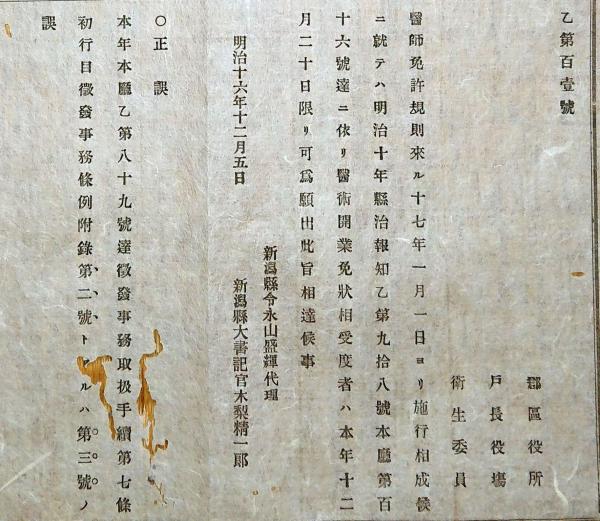 乙第百壹號
郡區役所
戶長役塲
衛生委員
醫師免許規則來ル十七年一月一日ヨリ施行相成候
ニ就テハ明治十年縣治報知乙第九拾八號本廳第百
十六號達ニ依リ醫術開業免狀相受度者ハ本年十二
月二十日限リ可爲願出此旨相達候事
明治十六年十二月五日
新潟縣令永山盛輝代理
新潟縣大書記官木梨精一郎
○正誤
本年本廳乙第八十九號達徵發事務取扱手續第七條
初行目徵發事務條例附錄第二號トアルハ第三號ノ
誤